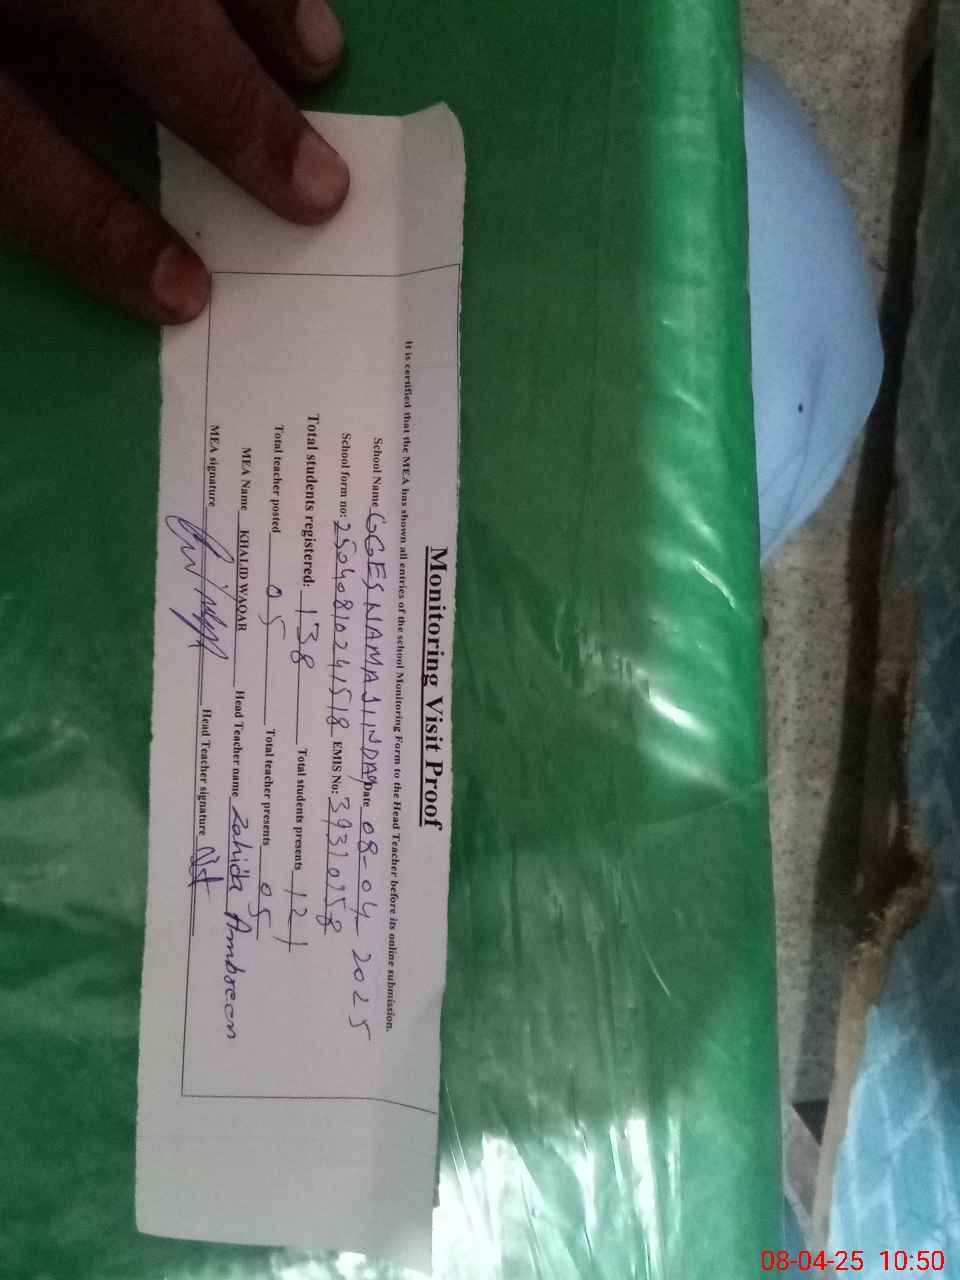 Monitoring Visit Proof
It is certified that the MEA has shown all entries of the school Monitoring Form to the Head Teacher before its online submission.
School Name GGES NAMAJINDAY Date 08-04 2025
School form no: 2504081024 1518 EMIS No: 39310758
Total students registered: 138 Total students presents 121
Total teacher posted 05 Total teacher presents 05
MEA Name KHALID WAQAR Head Teacher name Zahida Ambreen
MEA signature Head Teacher signature
08-04-25 10:50